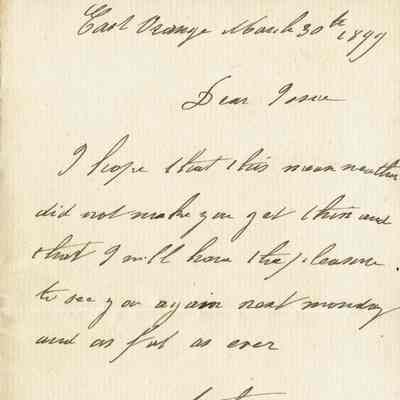 East Orange March 30th 1899
Dear Josue
I hope that this mean weather
did not make you get thin and
that I will have the pleasure
to see you again next monday
and as fat as ever